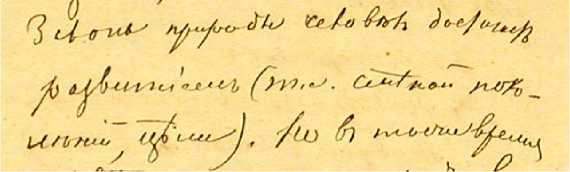 Законъ природы человѣкъ достигаетъ
развитiемъ (т.е. смѣной поко-
лѣнiй, цѣли). Но въ то же время